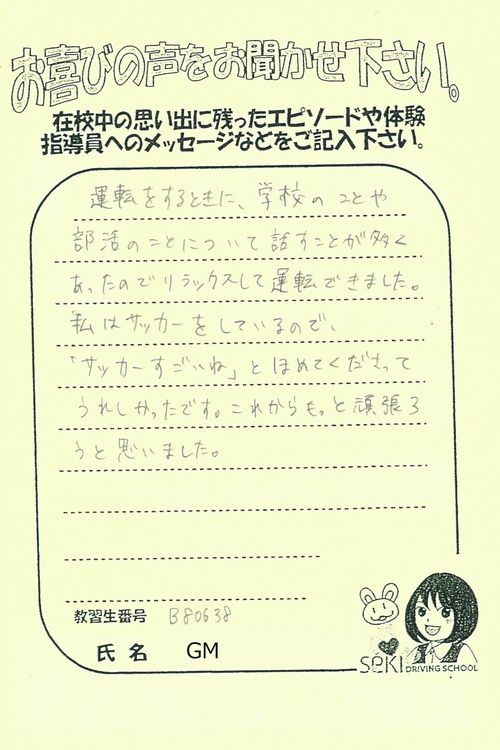 お喜びの声をお聞かせ下さい。
在校中の思い出に残ったエピソードや体験
指導員へのメッセージなどをご記入下さい。
運転をするときに、学校のことや
部活のことについて話すことが多く
あったのでリラックスして運転できました。
私はサッカーをしているので、
「サッカーすごいね」とほめてくださって
うれしかったです。これからもっと頑張ろ
うと思いました。
教習生番号 B80638
氏名 GM
SEKI DRIVING SCHOOL